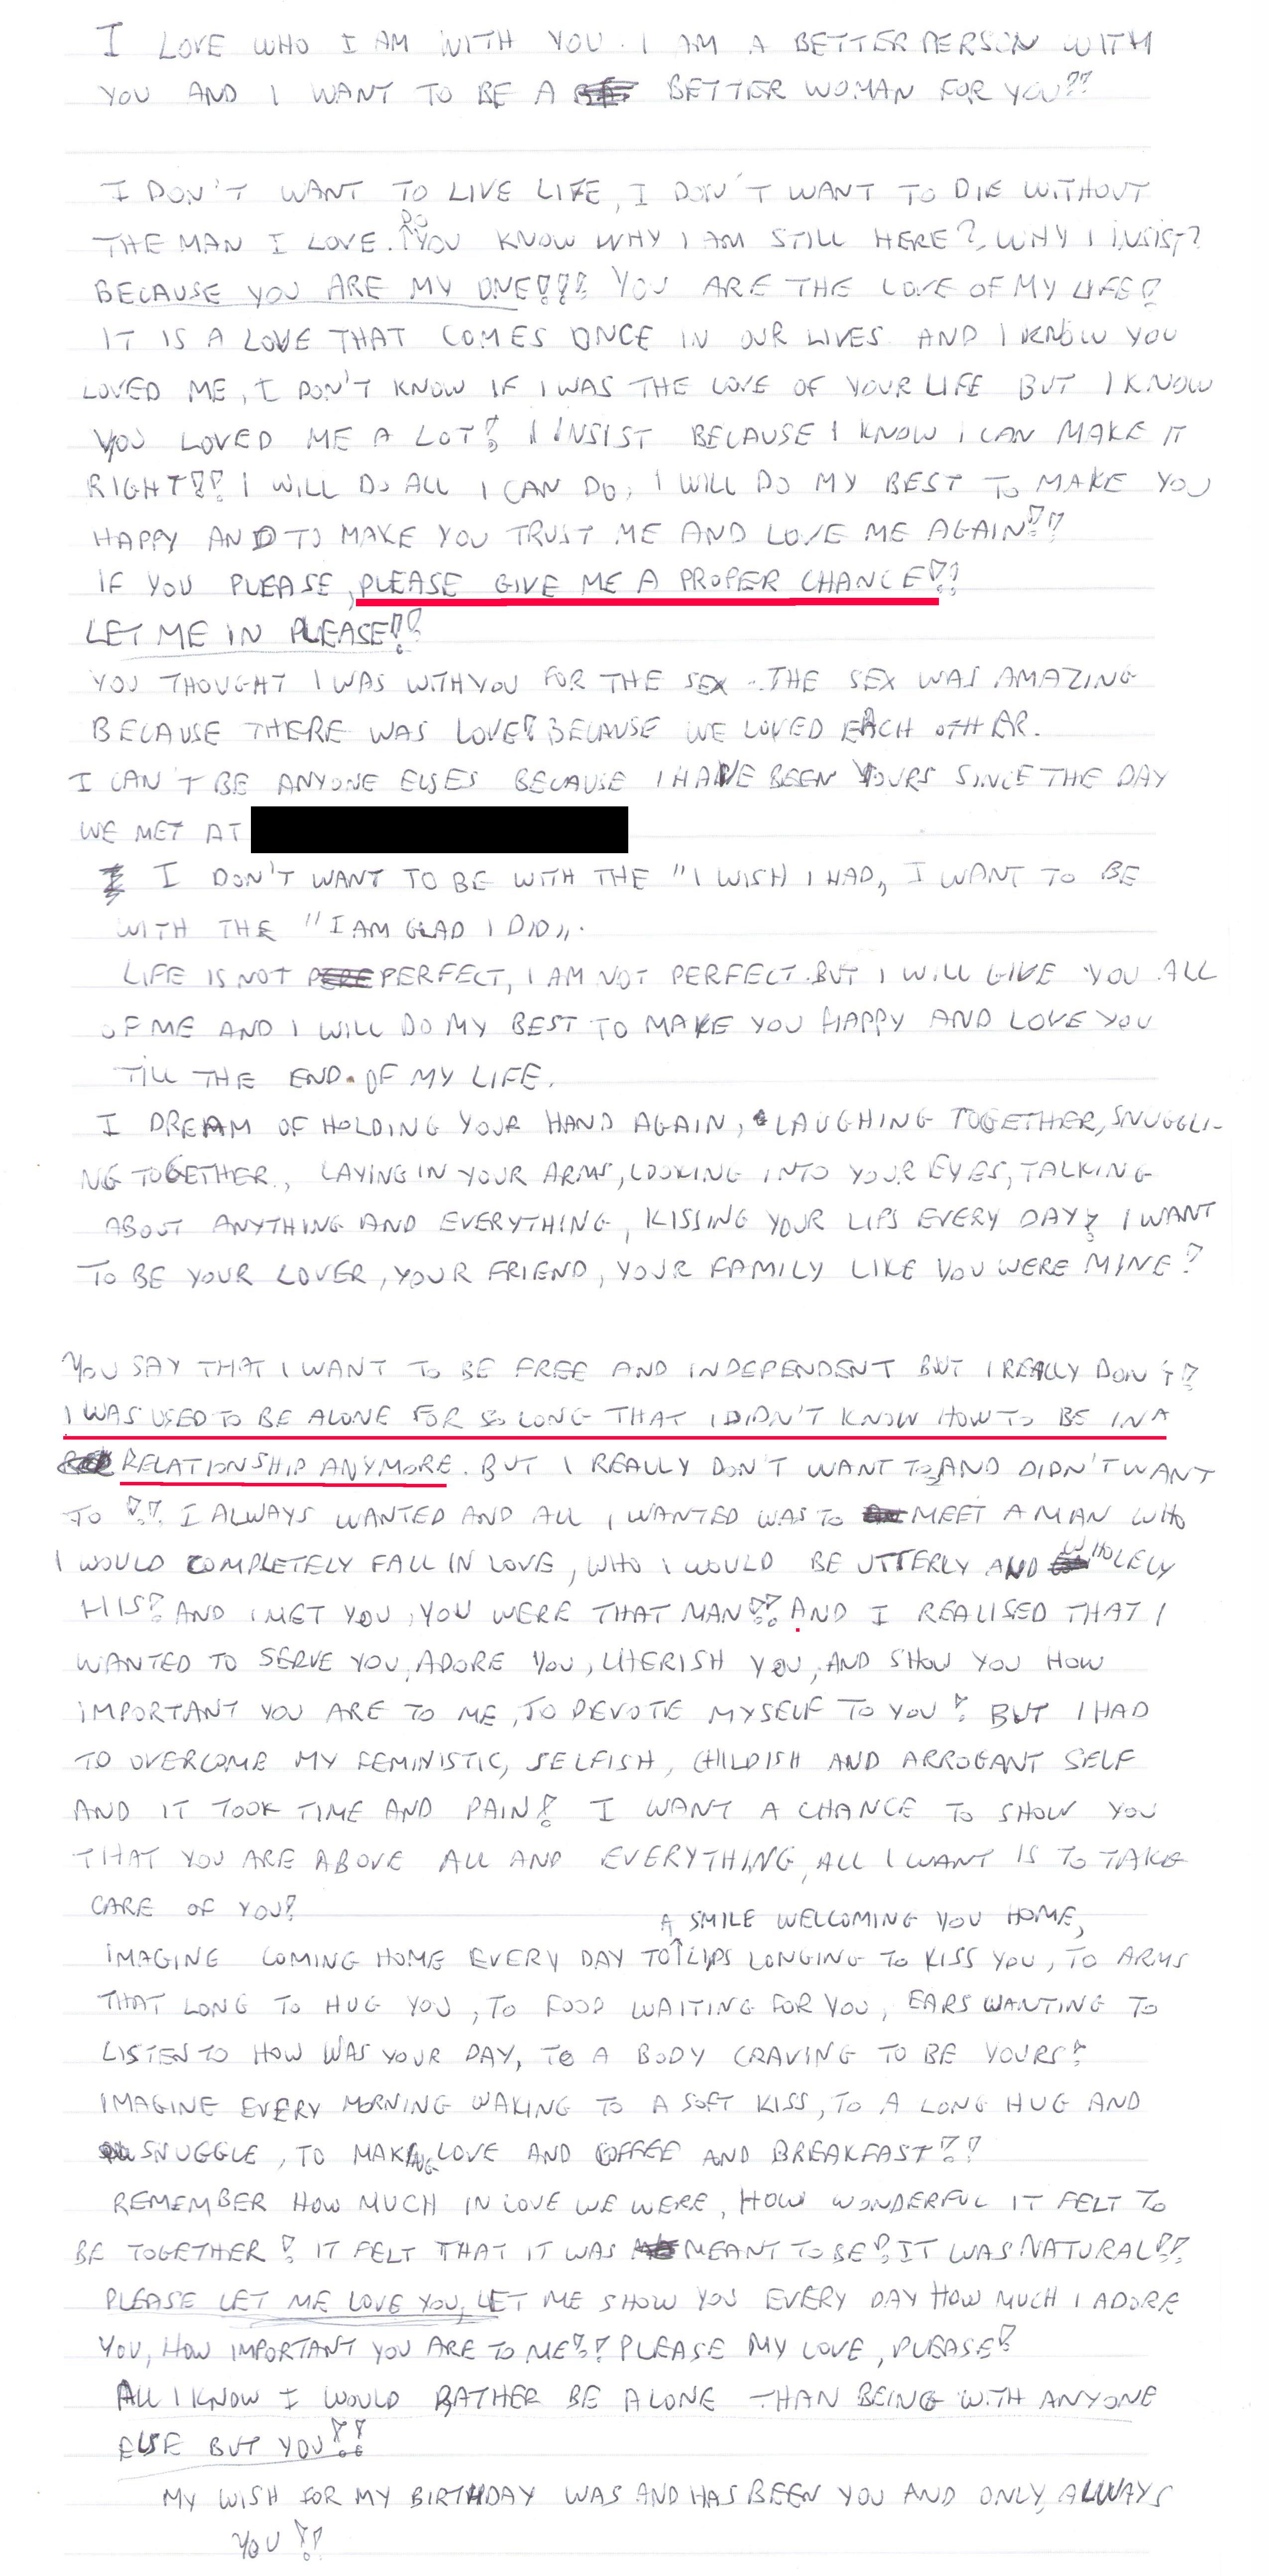 I LOVE WHO I AM WITH YOU. I AM A BETTER PERSON WITH
YOU AND I WANT TO BE A BETTER WOMAN FOR YOU!!
I DON'T WANT TO LIVE LIFE, I DON'T WANT TO DIE WITHOUT
THE MAN I LOVE. DO YOU KNOW WHY I AM STILL HERE?, WHY I INSIST?
BECAUSE YOU ARE MY ONE!!! YOU ARE THE LOVE OF MY LIFE!
IT IS A LOVE THAT COMES ONCE IN OUR LIVES AND I KNOW YOU
LOVED ME, I DON'T KNOW IF I WAS THE LOVE OF YOUR LIFE BUT I KNOW
YOU LOVED ME A LOT! I INSIST BECAUSE I KNOW I CAN MAKE IT
RIGHT!! I WILL DO ALL I CAN DO, I WILL DO MY BEST TO MAKE YOU
HAPPY AND TO MAKE YOU TRUST ME AND LOVE ME AGAIN!!
IF YOU PLEASE, PLEASE GIVE ME A PROPER CHANCE!!
LET ME IN PLEASE!!
YOU THOUGHT I WAS WITH YOU FOR THE SEX. THE SEX WAS AMAZING
BECAUSE THERE WAS LOVE! BECAUSE WE LOVED EACH OTHER.
I CAN'T BE ANYONE ELSES BECAUSE I HAVE BEEN YOURS SINCE THE DAY
WE MET AT
I DON'T WANT TO BE WITH THE "I WISH I HAD,, I WANT TO BE
WITH THE "I AM GLAD I DID,,.
LIFE IS NOT PERFECT, I AM NOT PERFECT. BUT I WILL GIVE YOU ALL
OF ME AND I WILL DO MY BEST TO MAKE YOU HAPPY AND LOVE YOU
TILL THE END OF MY LIFE.
I DREAM OF HOLDING YOUR HAND AGAIN, LAUGHING TOGETHER, SNUGGLI-
NG TOGETHER, LAYING IN YOUR ARMS, LOOKING INTO YOUR EYES, TALKING
ABOUT ANYTHING AND EVERYTHING, KISSING YOUR LIPS EVERY DAY! I WANT
TO BE YOUR LOVER, YOUR FRIEND, YOUR FAMILY LIKE YOU WERE MINE!
YOU SAY THAT I WANT TO BE FREE AND INDEPENDENT BUT I REALLY DON'T!
I WAS USED TO BE ALONE FOR SO LONG THAT I DIDN'T KNOW HOW TO BE IN A
RELATIONSHIP ANYMORE. BUT I REALLY DON'T WANT TO AND DIDN'T WANT
TO!! I ALWAYS WANTED AND ALL I WANTED WAS TO MEET A MAN WHO
I WOULD COMPLETELY FALL IN LOVE, WHO I WOULD BE UTTERLY AND WHOLELY
HIS! AND I MET YOU, YOU WERE THAT MAN!! AND I REALISED THAT I
WANTED TO SERVE YOU, ADORE YOU, CHERISH YOU, AND SHOW YOU HOW
IMPORTANT YOU ARE TO ME, TO DEVOTE MYSELF TO YOU! BUT I HAD
TO OVERCOME MY FEMINISTIC, SELFISH, CHILDISH AND ARROGANT SELF
AND IT TOOK TIME AND PAIN! I WANT A CHANCE TO SHOW YOU
THAT YOU ARE ABOVE ALL AND EVERYTHING, ALL I WANT IS TO TAKE
CARE OF YOU!
A SMILE WELCOMING YOU HOME,
IMAGINE COMING HOME EVERY DAY TO LIPS LONGING TO KISS YOU, TO ARMS
THAT LONG TO HUG YOU, TO FOOD WAITING FOR YOU, EARS WANTING TO
LISTEN TO HOW WAS YOUR DAY, TO A BODY CRAVING TO BE YOURS!
IMAGINE EVERY MORNING WAKING TO A SOFT KISS, TO A LONG HUG AND
SNUGGLE, TO MAKING LOVE AND COFFEE AND BREAKFAST!!
REMEMBER HOW MUCH IN LOVE WE WERE, HOW WONDERFUL IT FELT TO
BE TOGETHER! IT FELT THAT IT WAS MEANT TO BE! IT WAS NATURAL!!
PLEASE LET ME LOVE YOU, LET ME SHOW YOU EVERY DAY HOW MUCH I ADORE
YOU, HOW IMPORTANT YOU ARE TO ME!! PLEASE MY LOVE, PLEASE!
ALL I KNOW I WOULD RATHER BE ALONE THAN BEING WITH ANYONE
ELSE BUT YOU!!
MY WISH FOR MY BIRTHDAY WAS AND HAS BEEN YOU AND ONLY, ALWAYS
YOU!!